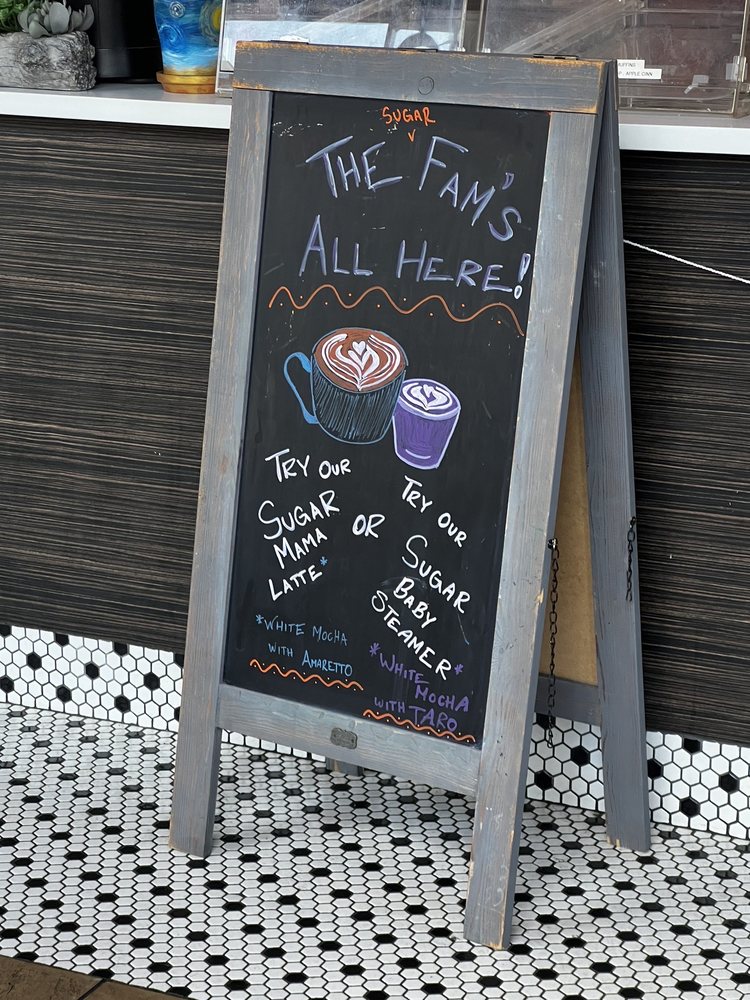 SUGAR
THE FAM'S
ALL HERE!
TRY OUR
SUGAR
MAMA
LATTE*
*WHITE MOCHA
WITH AMARETTO
OR
TRY OUR
SUGAR
BABY
STEAMER*
*WHITE
MOCHA
WITH TARO